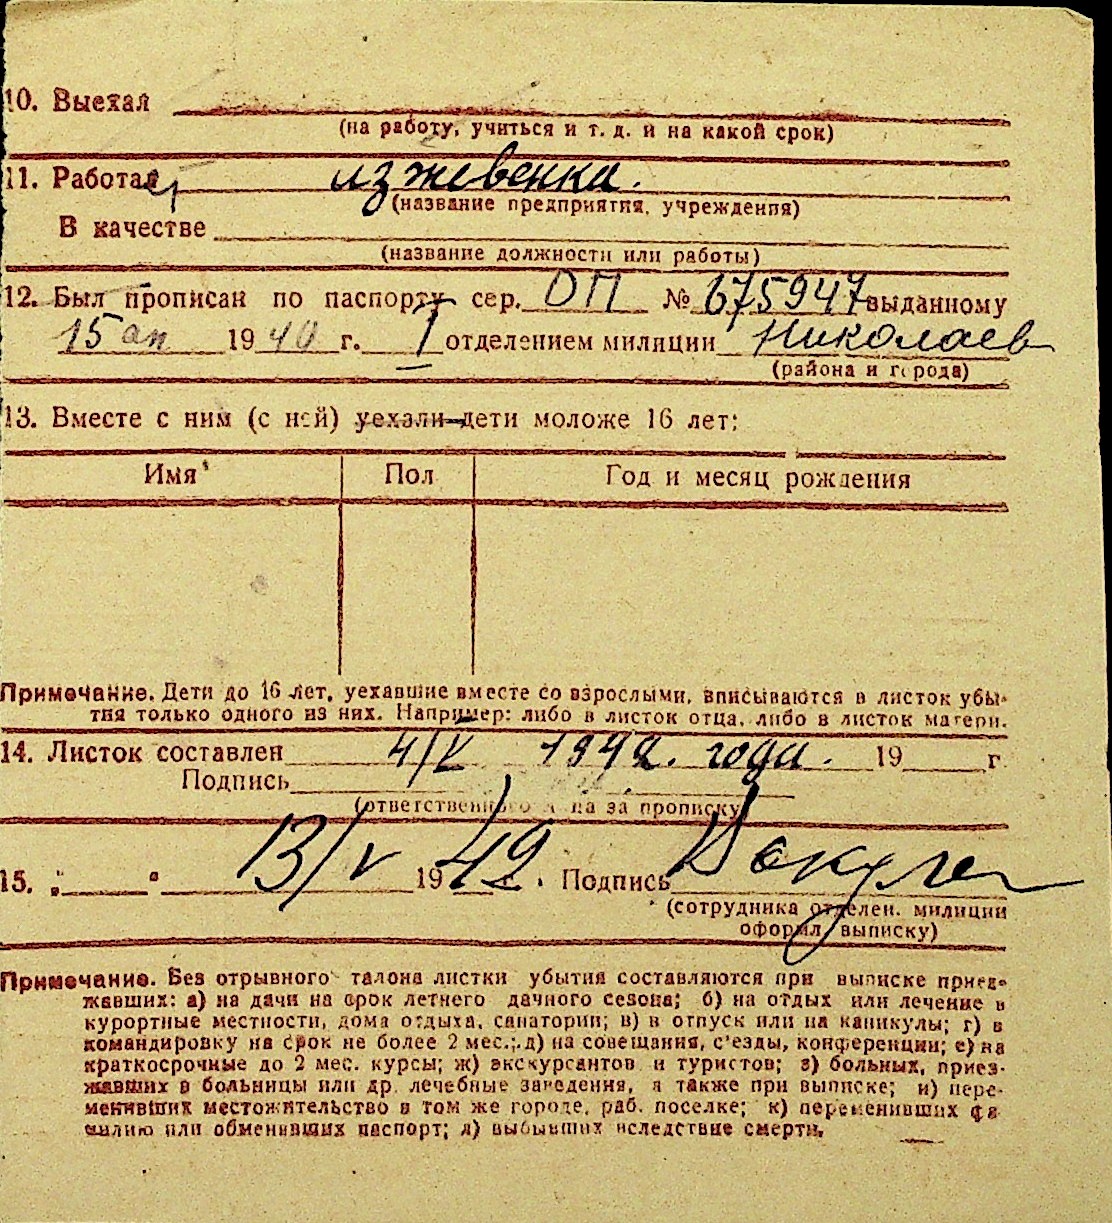 10. Выехал
(на работу, учиться и т. д. и на какой срок)
11. Работал изжевенка.
(название предприятия, учреждения)
В качестве
(название должности или работы)
12. Был прописан по паспорту сер. ОП № 675947 выданному
15 ап 1940 г. I отделением милиции Николаев
(района и города)
13. Вместе с ним (с ней) уехали дети моложе 16 лет:
Имя Пол Год и месяц рождения
Примечание. Дети до 16 лет, уехавшие вместе со взрослыми, вписываются в листок убы-
тия только одного из них. Например: либо в листок отца, либо в листок матери.
14. Листок составлен 4/V 1942. года. 19 г.
Подпись
(ответственного лица за прописку)
15. „ " 13/V 1942. Подпись
(сотрудника отделен. милиции
оформ. выписку)
Примечание. Без отрывного талона листки убытия составляются при выписке приез-
жавших: а) на дачи на срок летнего дачного сезона; б) на отдых или лечение в
курортные местности, дома отдыха, санатории; в) в отпуск или на каникулы; г) в
командировку на срок не более 2 мес.; д) на совещания, с'езды, конференции; е) на
краткосрочные до 2 мес. курсы; ж) экскурсантов и туристов; з) больных, приез-
жавших в больницы или др. лечебные заведения, а также при выписке; и) пере-
менивших местожительство в том же городе, раб. поселке; к) переменивших фа
милию или обменивших паспорт; л) выбывших вследствие смерти.